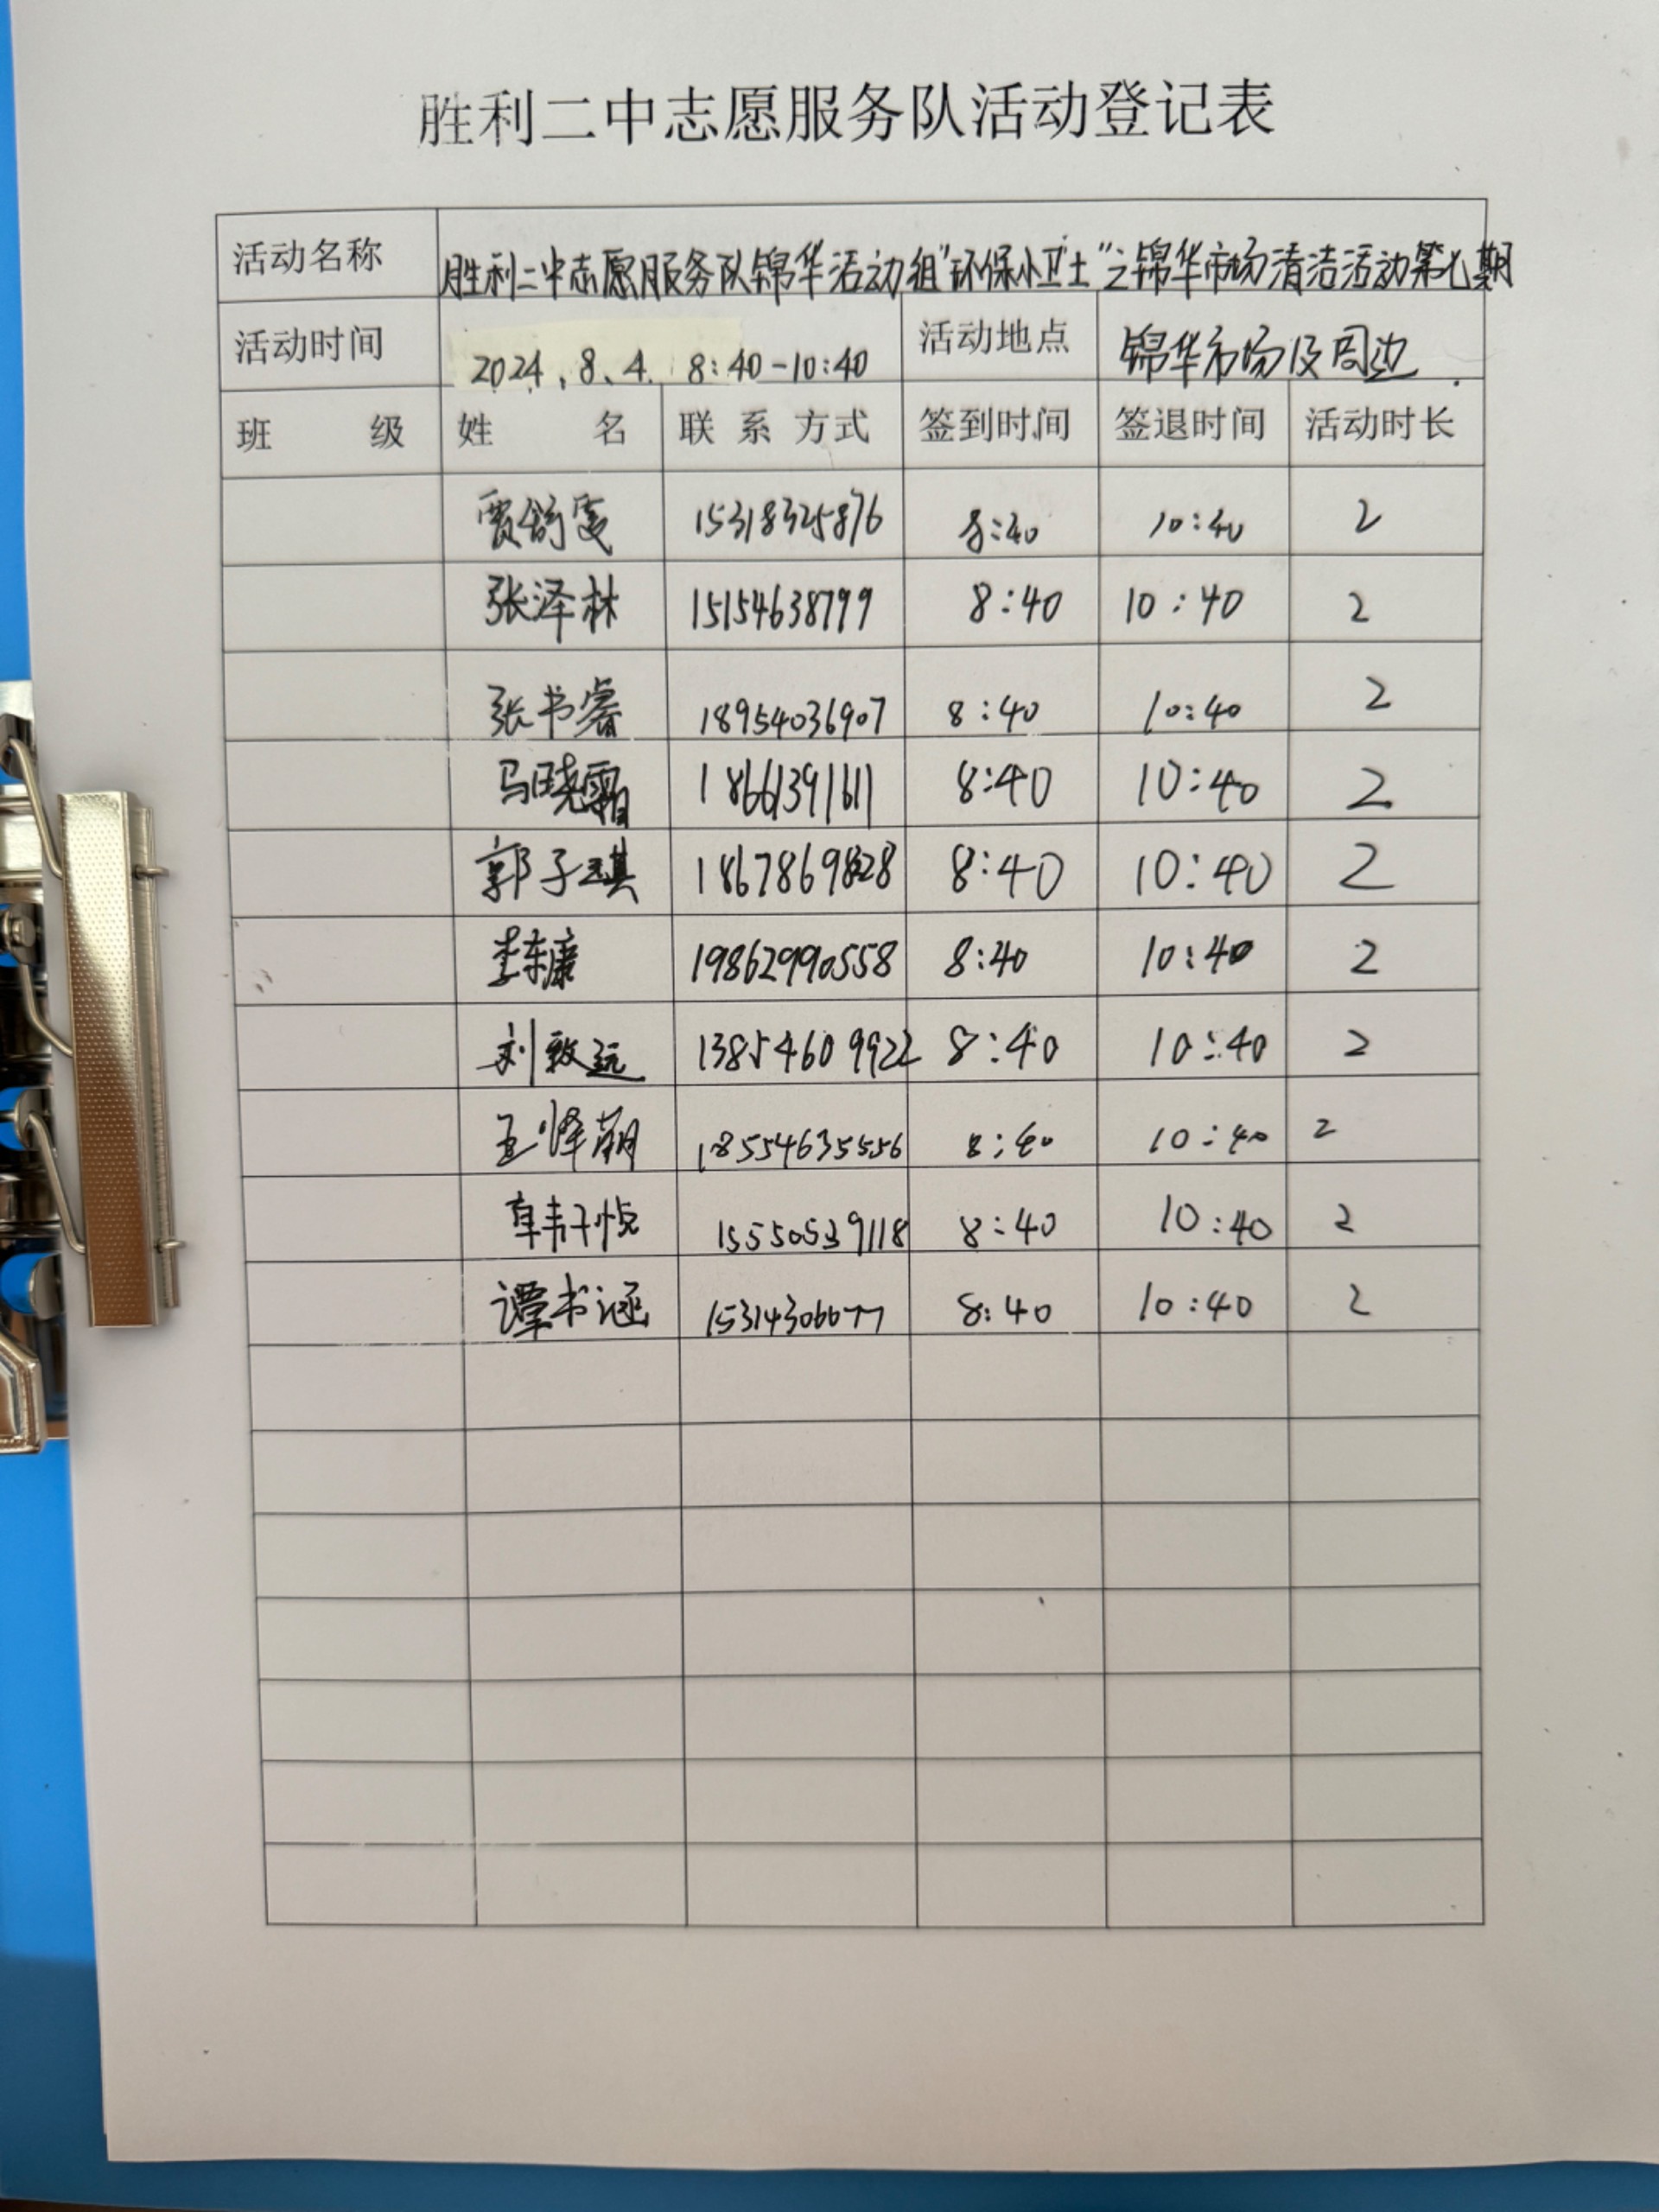 胜利二中志愿服务队活动登记表
活动名称 胜利二中志愿服务队锦华活动组"环保小卫士"之锦华市场清洁活动第七期
活动时间 2024.8.4. 8:40-10:40 活动地点 锦华市场及周边.
班 级 姓 名 联 系 方式 签到时间 签退时间 活动时长
贾舒雯 15318325876 8:40 10:40 2
张泽林 15154638799 8:40 10:40 2
张书睿 18954036907 8:40 10:40 2
马晓霜 18661391611 8:40 10:40 2
郭子琪 1867869828 8:40 10:40 2
李东康 19862990558 8:40 10:40 2
刘致远 13854609922 8:40 10:40 2
18554635556 8:40 10:40 2
15550539118 8:40 10:40 2
谭书涵 15314306677 8:40 10:40 2